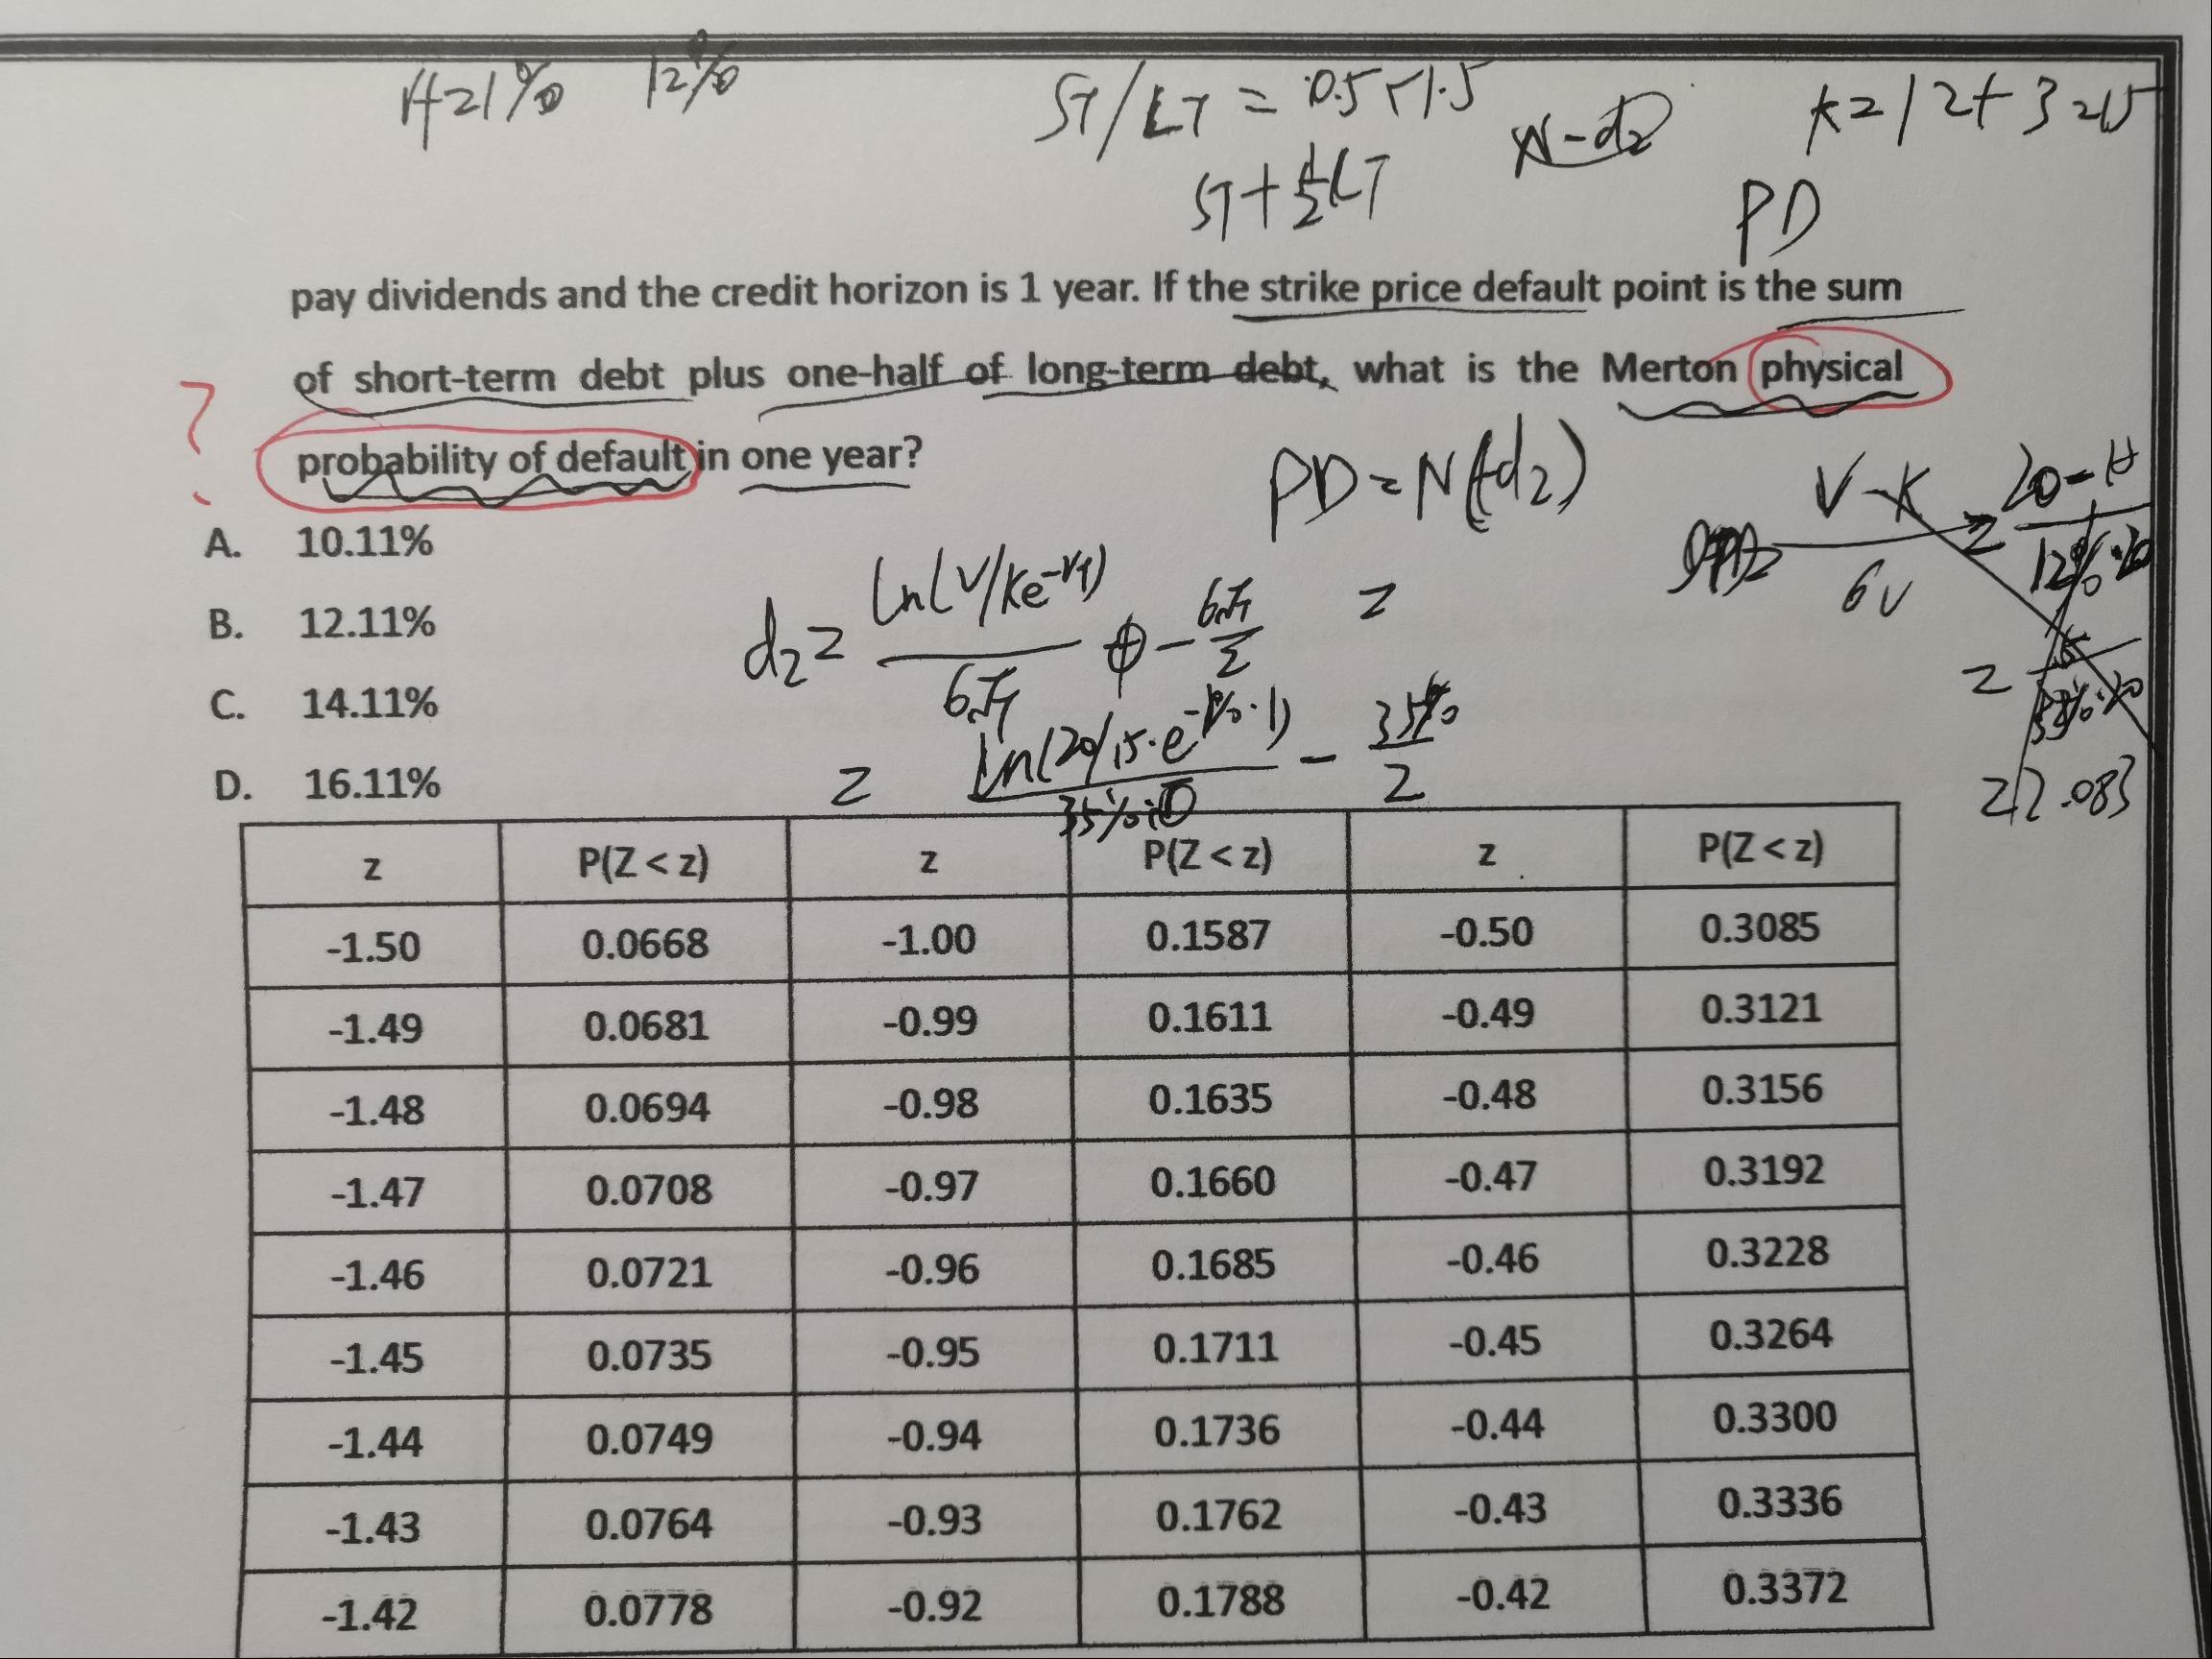 12%
ST/LT = 0.5 < 1.5
N-d2
K=12+3=15
ST+½LT
PD
pay dividends and the credit horizon is 1 year. If the strike price default point is the sum
of short-term debt plus one-half of long-term debt, what is the Merton physical
?
probability of default in one year?
PD=N(-d2)
V-K
A. 10.11%
B. 12.11%
C. 14.11%
D. 16.11%
d2=
ln(V/Ke
=
35%
2
z P(Z < z) z P(Z < z) z P(Z < z)
-1.50 0.0668 -1.00 0.1587 -0.50 0.3085
-1.49 0.0681 -0.99 0.1611 -0.49 0.3121
-1.48 0.0694 -0.98 0.1635 -0.48 0.3156
-1.47 0.0708 -0.97 0.1660 -0.47 0.3192
-1.46 0.0721 -0.96 0.1685 -0.46 0.3228
-1.45 0.0735 -0.95 0.1711 -0.45 0.3264
-1.44 0.0749 -0.94 0.1736 -0.44 0.3300
-1.43 0.0764 -0.93 0.1762 -0.43 0.3336
-1.42 0.0778 -0.92 0.1788 -0.42 0.3372